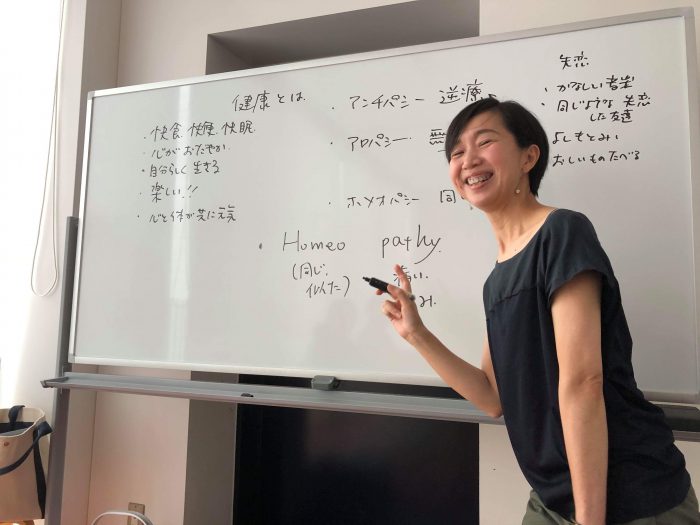 健康とは
・快食、快便、快眠
・心がおだやか
・自分らしく生きる
・楽しい!!
・心と体が共に元気
・アンチパシー 逆療
・アロパシー
・ホメオパシー 同
・Homeo pathy
(同じ、
似た)
病い、
み
失恋
・かなしい音楽
・同じような失恋
した友達
よしもとみ
おいしいものたべる